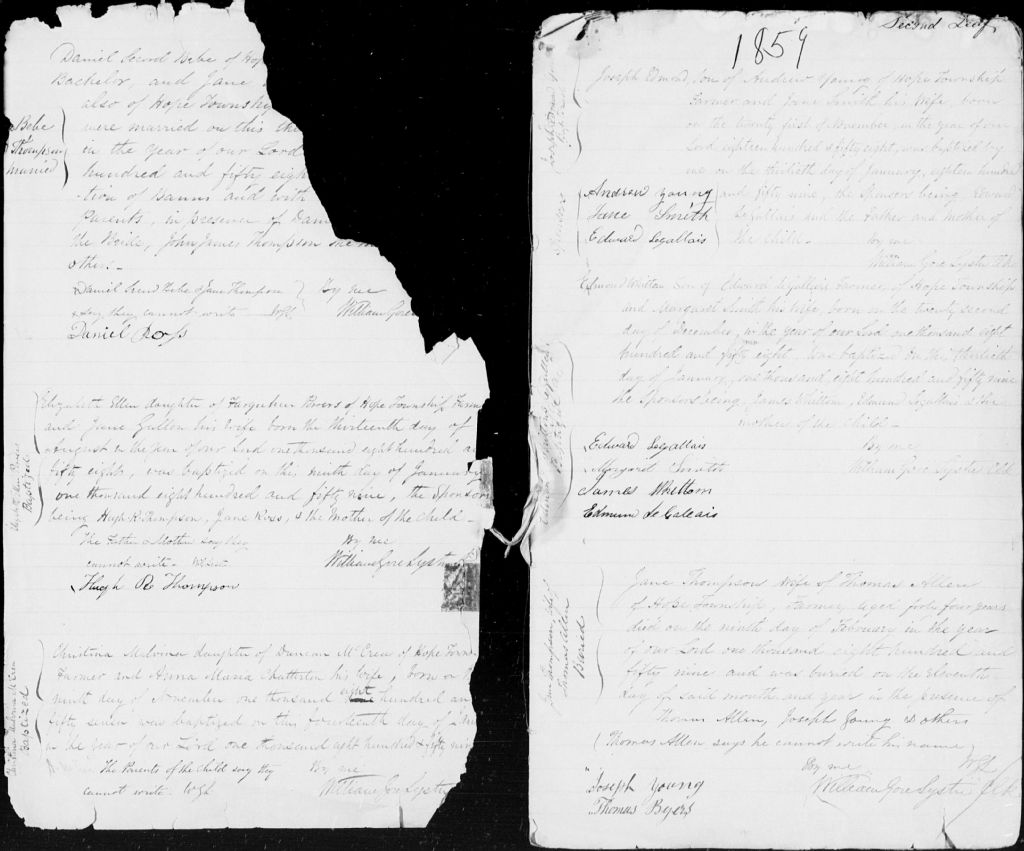 Daniel Secord Bebe of Hop
Bachelor, and Jane
also of Hope Townsh
Bebe
&
Thompson
married
were married on this the
in the year of our Lord
hundred and fifty eigh
tion of Banns and with
Parents, in presence of Dan
the Bride, John James Thompson
others.
Daniel Secord Bebe & Jane Thompson
say they cannot write WGL
By me
William Gore
Daniel Ross
Elizabeth Ellen daughter of Farquhar Bowers of Hope Township Farm
and Jane Gallon his wife born the thirteenth day of
August in the year of our Lord one thousand eight hundred a
fifty eight, was baptized on this ninth day of January
one thousand eight hundred and fifty nine, the Sponsors
being Hugh R. Thompson, Jane Ross, & the Mother of the child.
Baptized
The Father & Mother say they
cannot write.
By me
William Gore Lyster
Hugh R Thompson
Christina Malvina daughter of Duncan McCrea of Hope Town
Farmer and Anna Maria Chatterton his wife, born on
ninth day of November one thousand eight hundred an
fifty seven was baptized on this fourteenth day of
in the year of our Lord one thousand eight hundred & fifty nin
Christina Malvina McCrea
baptized
The Parents of the child say they
cannot write. WGL
By me
William Gore Lyster
Second Leaf
1859
Joseph Edmond, Son of Andrew Young of Hope Township
Farmer and Jane Smith his Wife, born
on the twenty first of November, in the year of our
Lord eighteen hundred & fifty eight, was baptized by
me on the thirtieth day of January, eighteen hundred
and fifty nine, the Sponsors being Edward
Legallais and the Father and Mother of
the Child.
Andrew Young
Jane Smith
Edward Legallais
By me
William Gore Lyster
Edmond William Son of Edward Legallais Farmer, of Hope Township
and Margaret Smith his Wife, born on the twenty second
day of December, in the year of our Lord one thousand eight
hundred and fifty eight, was baptized on the thirtieth
day of January, one thousand, eight hundred and fifty nine
the Sponsors being, James Whittom, Edmund LeGallais & the
mother of the Child.
Edward Legallais
Margard Smith
James Whittom
Edmund Le Galeais
By me
William Gore Lyster
Jane Thompson Wife of Thomas Allen
of Hope Township, Farmer, aged forty four years
died on the ninth day of February in the year
of our Lord one thousand eight hundred and
fifty nine and was buried on the eleventh
day of said month and year in the presence of
Thomas Allen, Joseph Young & others
Jane Thompson, wife of
Thomas Allen
Buried
Thomas Allen says he cannot write his name
WGL
By me
William Gore Lyster
Joseph Young
Thomas Byers